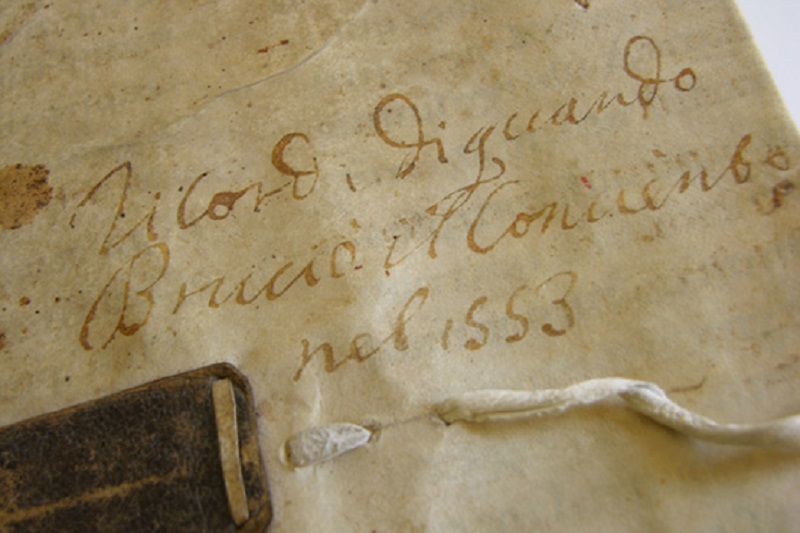 Ricordi di quando
Bruciò il Conuento
nel 1553